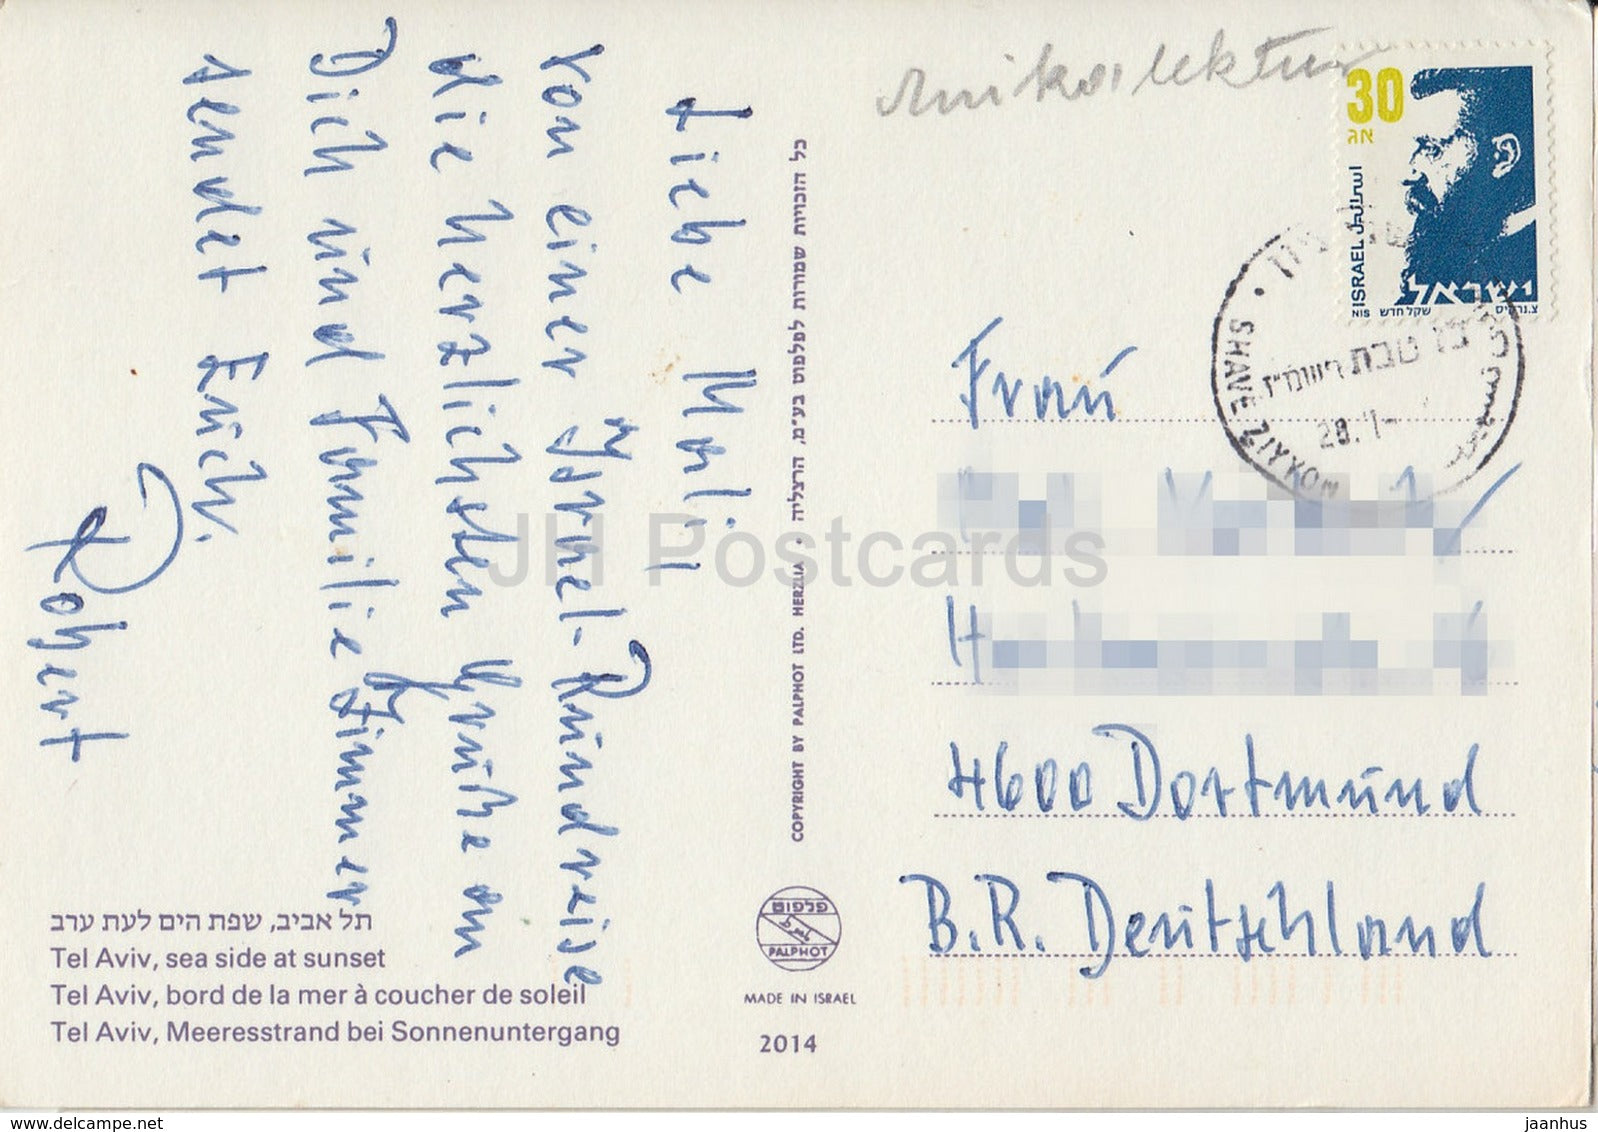 Liebe Mali,
von einer Israel-Rundreise
die herzlichsten Grüße an
Dich und Familie Zimmer
sendet Euch.
Robert
תל אביב, שפת הים לעת ערב
Tel Aviv, sea side at sunset
Tel Aviv, bord de la mer à coucher de soleil
Tel Aviv, Meeresstrand bei Sonnenuntergang
כל הזכויות שמורות לפלפוט בע״מ, הרצליה • COPYRIGHT BY PALPHOT LTD. HERZLIA
פלפוט
PALPHOT
MADE IN ISRAEL
2014
30
אג
ISRAEL اسرائيل
ישראל
NIS שקל חדש
SHAVE ZIYYON
טבת תשמ״ז
28. 1-
Frau
4600 Dortmund
B.R. Deutschland
JH Postcards
delcampe.net
jaanhus